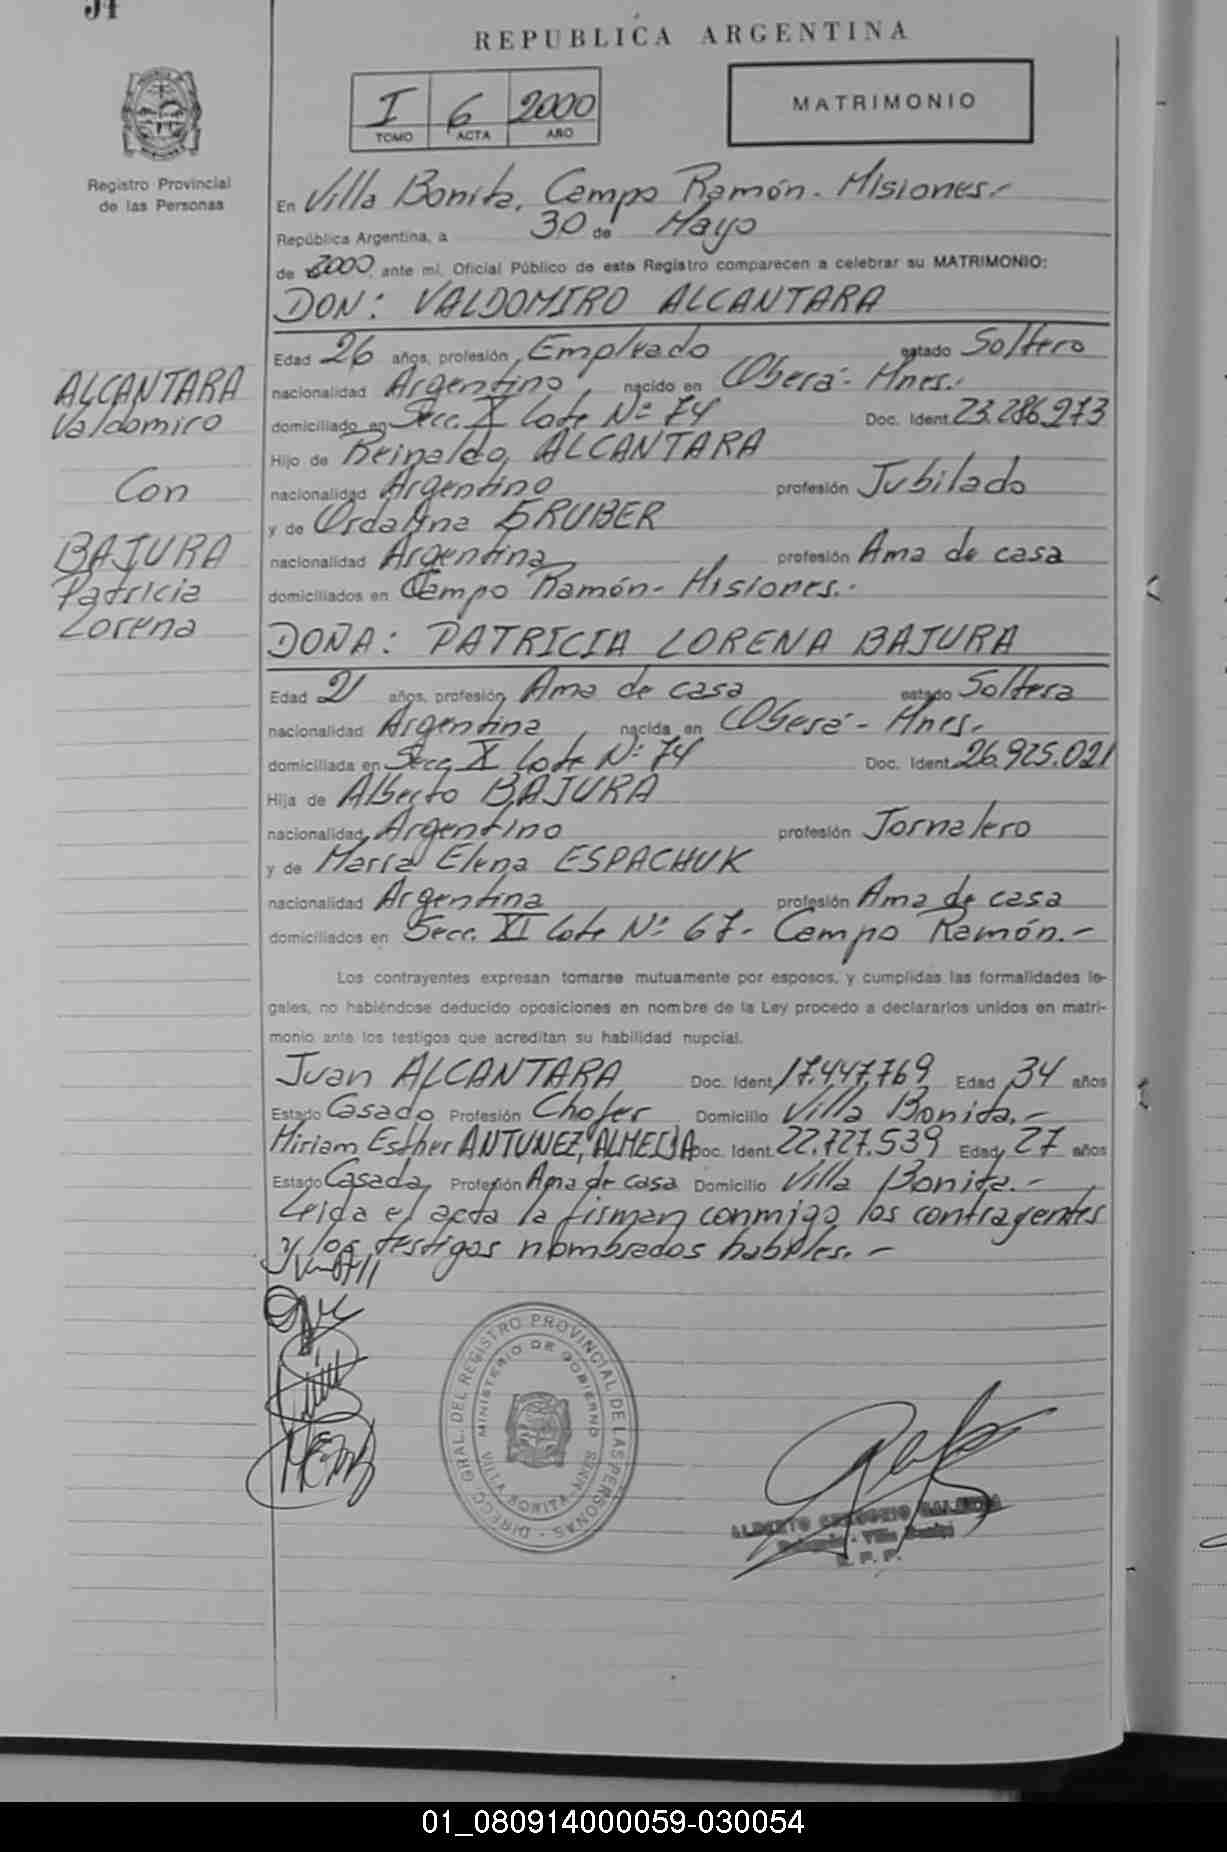 REPUBLICA ARGENTINA
I 6 2000
TOMO ACTA AÑO
MATRIMONIO
Registro Provincial
de las Personas
En Villa Bonita, Campo Ramón - Misiones.-
República Argentina, a 30 de Mayo
de 2000, ante mí, Oficial Público de este Registro comparecen a celebrar su MATRIMONIO:
DON: VALDOMIRO ALCANTARA
Edad 26 años, profesión Empleado estado Soltero
nacionalidad Argentino nacido en Oberá - Mnes.-
domiciliado en Secc. X Lote Nº 74 Doc. Ident. 23.286.973
Hijo de Reinaldo ALCANTARA
nacionalidad Argentino profesión Jubilado
y de Ordalina GRUBER
nacionalidad Argentina profesión Ama de casa
domiciliados en Campo Ramón - Misiones.-
DOÑA: PATRICIA LORENA BAJURA
Edad 21 años, profesión Ama de casa estado Soltera
nacionalidad Argentina nacida en Oberá - Mnes.-
domiciliada en Secc. X Lote Nº 74 Doc. Ident. 26.925.021
Hija de Alberto BAJURA
nacionalidad Argentino profesión Jornalero
y de María Elena ESPACHUK
nacionalidad Argentina profesión Ama de casa
domiciliados en Secc. XI Lote Nº 67 - Campo Ramón.-
Los contrayentes expresan tomarse mutuamente por esposos, y cumplidas las formalidades le-
gales, no habiéndose deducido oposiciones en nombre de la Ley procedo a declararlos unidos en matri-
monio ante los testigos que acreditan su habilidad nupcial.
Juan ALCANTARA Doc. Ident. 17.447.769 Edad 34 años
Estado Casado Profesión Chofer Domicilio Villa Bonita.-
Miriam Esther ANTUNEZ, ALMEIDA Doc. Ident. 22.727.539 Edad 27 años
Estado Casada Profesión Ama de casa Domicilio Villa Bonita.-
Leída el acta la firman conmigo los contrayentes
y los testigos nombrados habiles.-
ALCANTARA
Valdomiro
Con
BAJURA
Patricia
Lorena
DIRECC. GRAL. DEL REGISTRO PROVINCIAL DE LAS PERSONAS
MINISTERIO DE GOBIERNO
VILLA BONITA - MNES
ALBERTO
Villa Bonita
R. P. P.
01_080914000059-030054